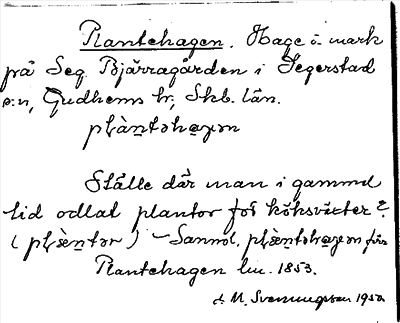 Plantehagen. Hage o. mark
på Seg. Bjärragården i Segerstad
s:n, Gudhems hr, Skb. län.
plàntəhaɡən
Ställe där man i gammal
tid odlat plantor för köksväxter?
(plàntər) – Sannol. plàntəhaɡən för
Plantehagen lm. 1853.
M. Svenungsson 1950.